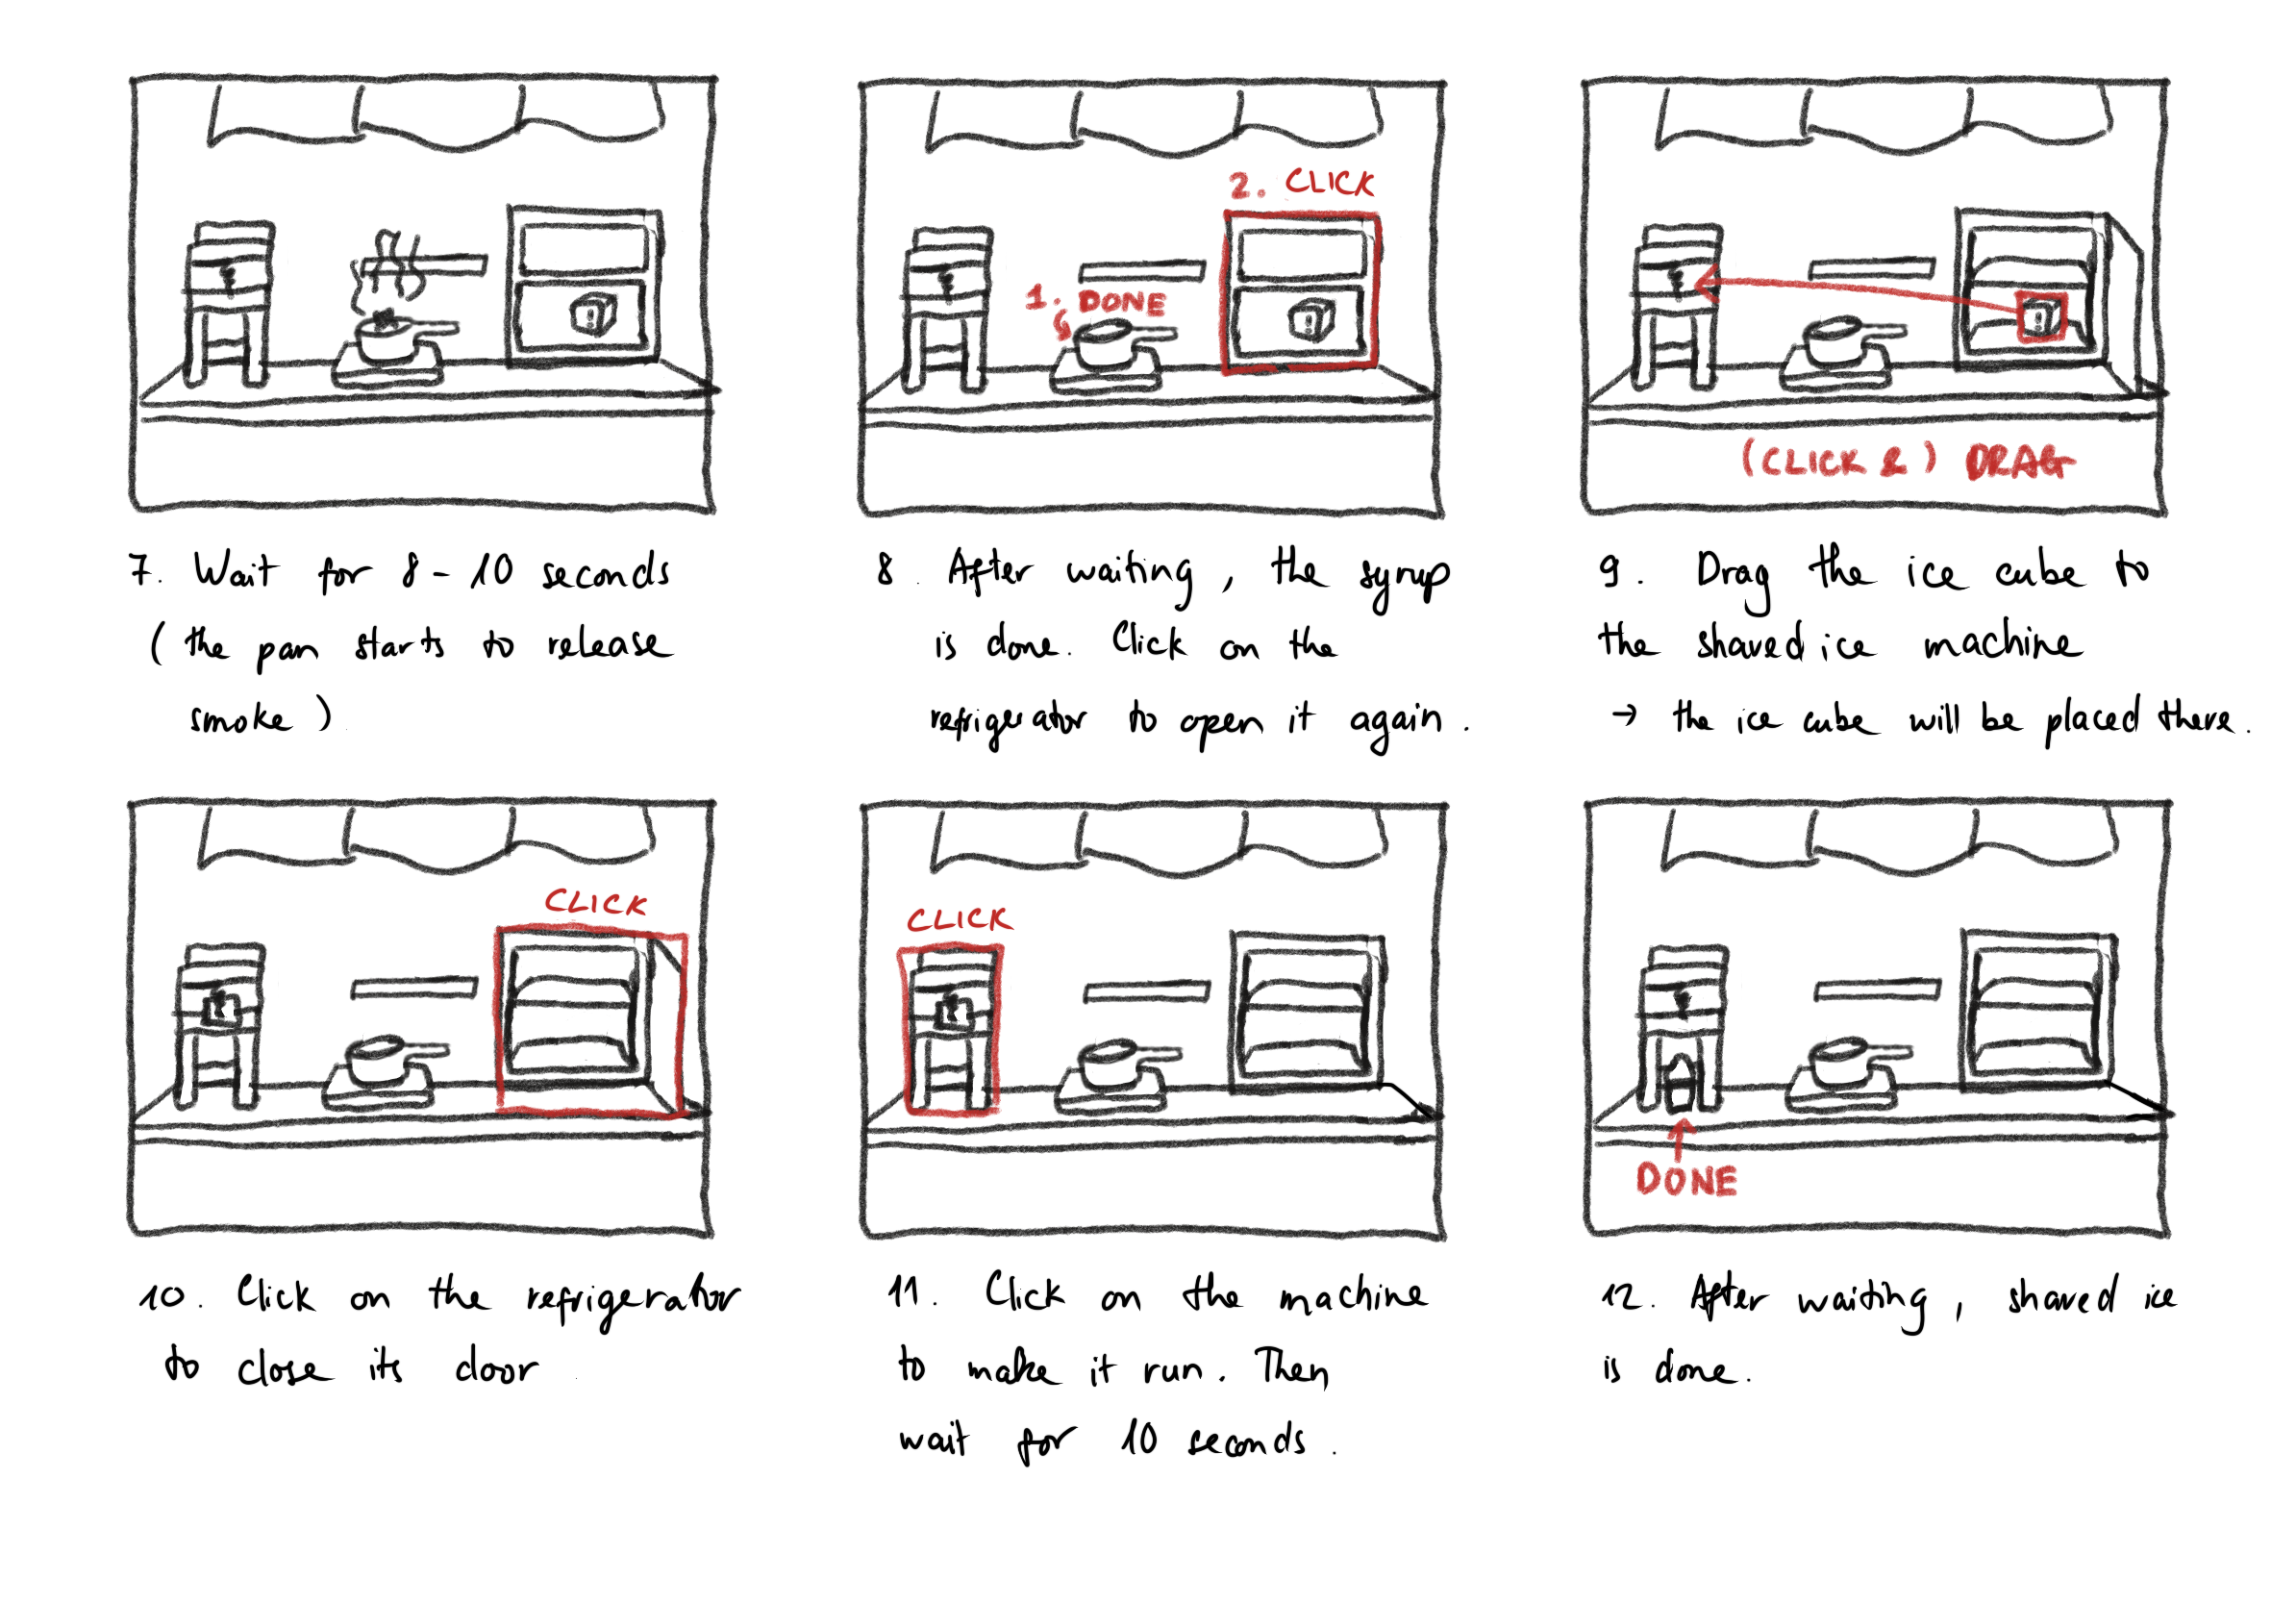 2. CLICK
1. DONE
(CLICK &) DRAG
7. Wait for 8 - 10 seconds
(the pan starts to release
smoke)
8. After waiting, the syrup
is done. Click on the
refrigerator to open it again.
9. Drag the ice cube to
the shaved ice machine
→ the ice cube will be placed there.
CLICK
CLICK
DONE
10. Click on the refrigerator
to close its door
11. Click on the machine
to make it run. Then
wait for 10 seconds.
12. After waiting, shaved ice
is done.